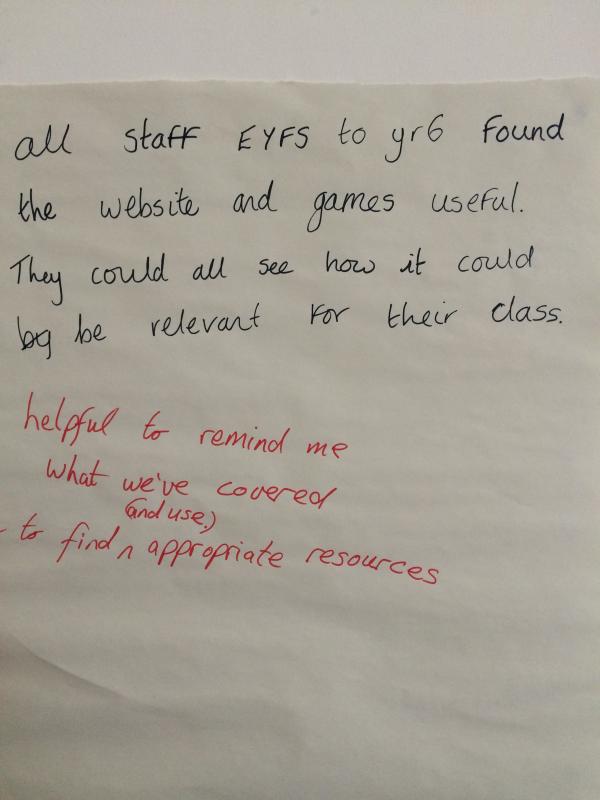 all staff EYFS to yr6 found
the website and games useful.
They could all see how it could
be relevant for their class.
helpful to remind me
what we've covered
(and use)
- to find ^ appropriate resources